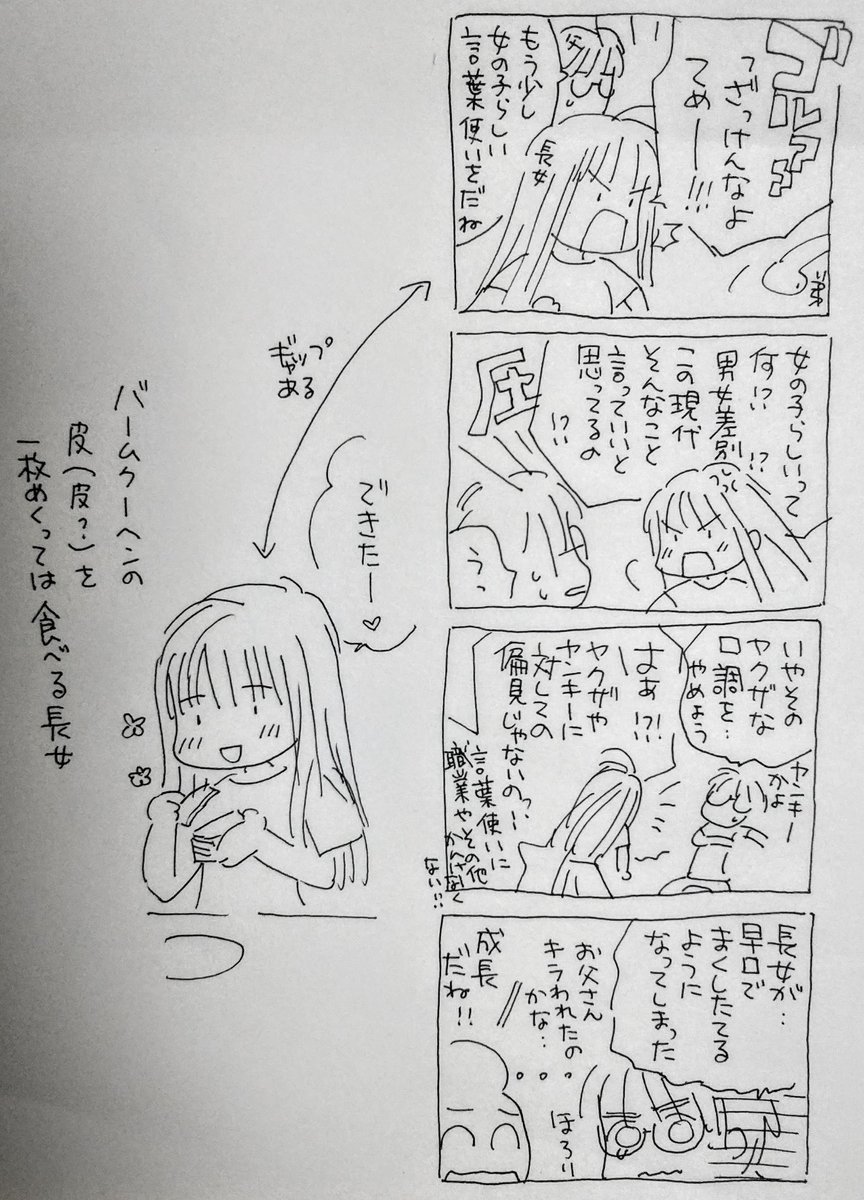 ゴルァァ
っざっけんなよ
てめー!!!
弟
父
長女
もう少し
女の子らしい
言葉使いをだね
女の子らしいって
何!?
男女差別!?
この現代
そんなこと
言っていいと
思ってるの
!?
圧
うっ
いやその
ヤクザな
口調を…
やめよう
ヤンキー
かよ
はぁ!?!
ヤクザや
ヤンキーに
対しての
偏見じゃないのっ!
言葉使いに
職業やその他
かんけいなく
ない!!
長女が…
早口で
まくしたてる
ように
なってしまった
お父さん
キラわれたの
かな…
ほろり
成長
だね!!
ギャップ
ある
できたー♡
バームクーヘンの
皮(皮?)を
一枚めくっては食べる長女